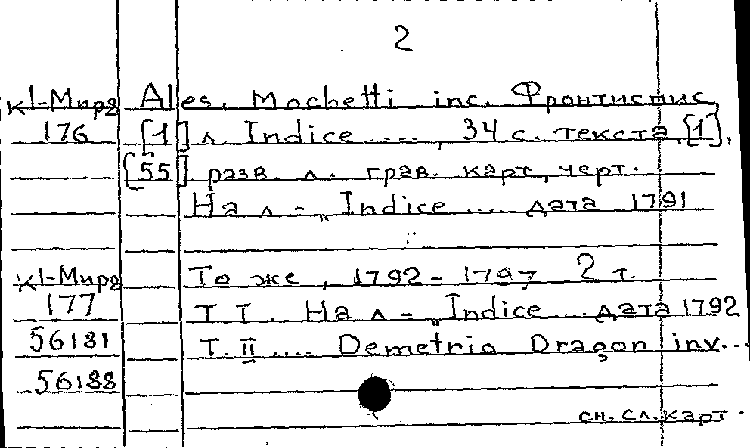 2
К1-Мира Ales. Mochetti inc. Фронтиспис,
176 [1] л Indice ...., 34 с. текста, [1],
[55] разв. л. грав. карт, черт.
На л - „Indice ... дата 1791
К1-Мира То же, 1792-1797 2 т.
177 Т. I. На л - „Indice ... дата 1792
56181 Т. II .... Demetrio Dragon inv...
56188
сн. сл. карт.